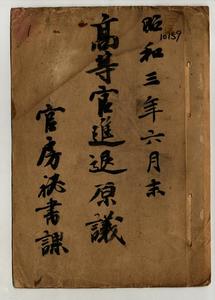 昭和三年六月末
高等官進退原議
官房秘書課
10159